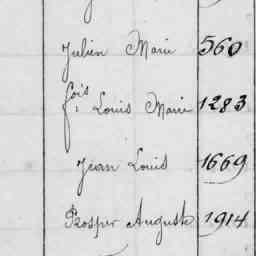 Julien Marie 560
fois Louis Marie 1283
Jean Louis 1669
Prosper Auguste 1914